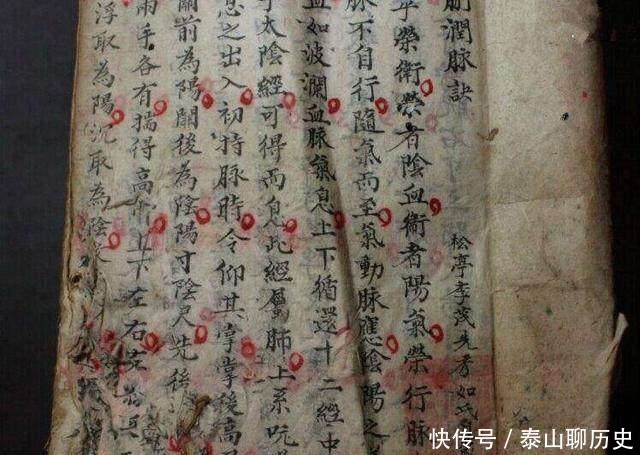 潤脉訣
松亭李茂先
榮衛榮者陰血衛者陽氣榮行脉
脉不自行隨氣而至氣動脉應陰陽之
血如波瀾血脉氣息上下循還十二經中
太陰經可得而息此經屬肺上系吭
息之出入初持脉時令仰其掌掌後高
關前為陽關後為陰陽寸陰尺先後
兩手各有揣得高骨上下左右
浮取為陽沉取為陰
快传号／泰山聊历史